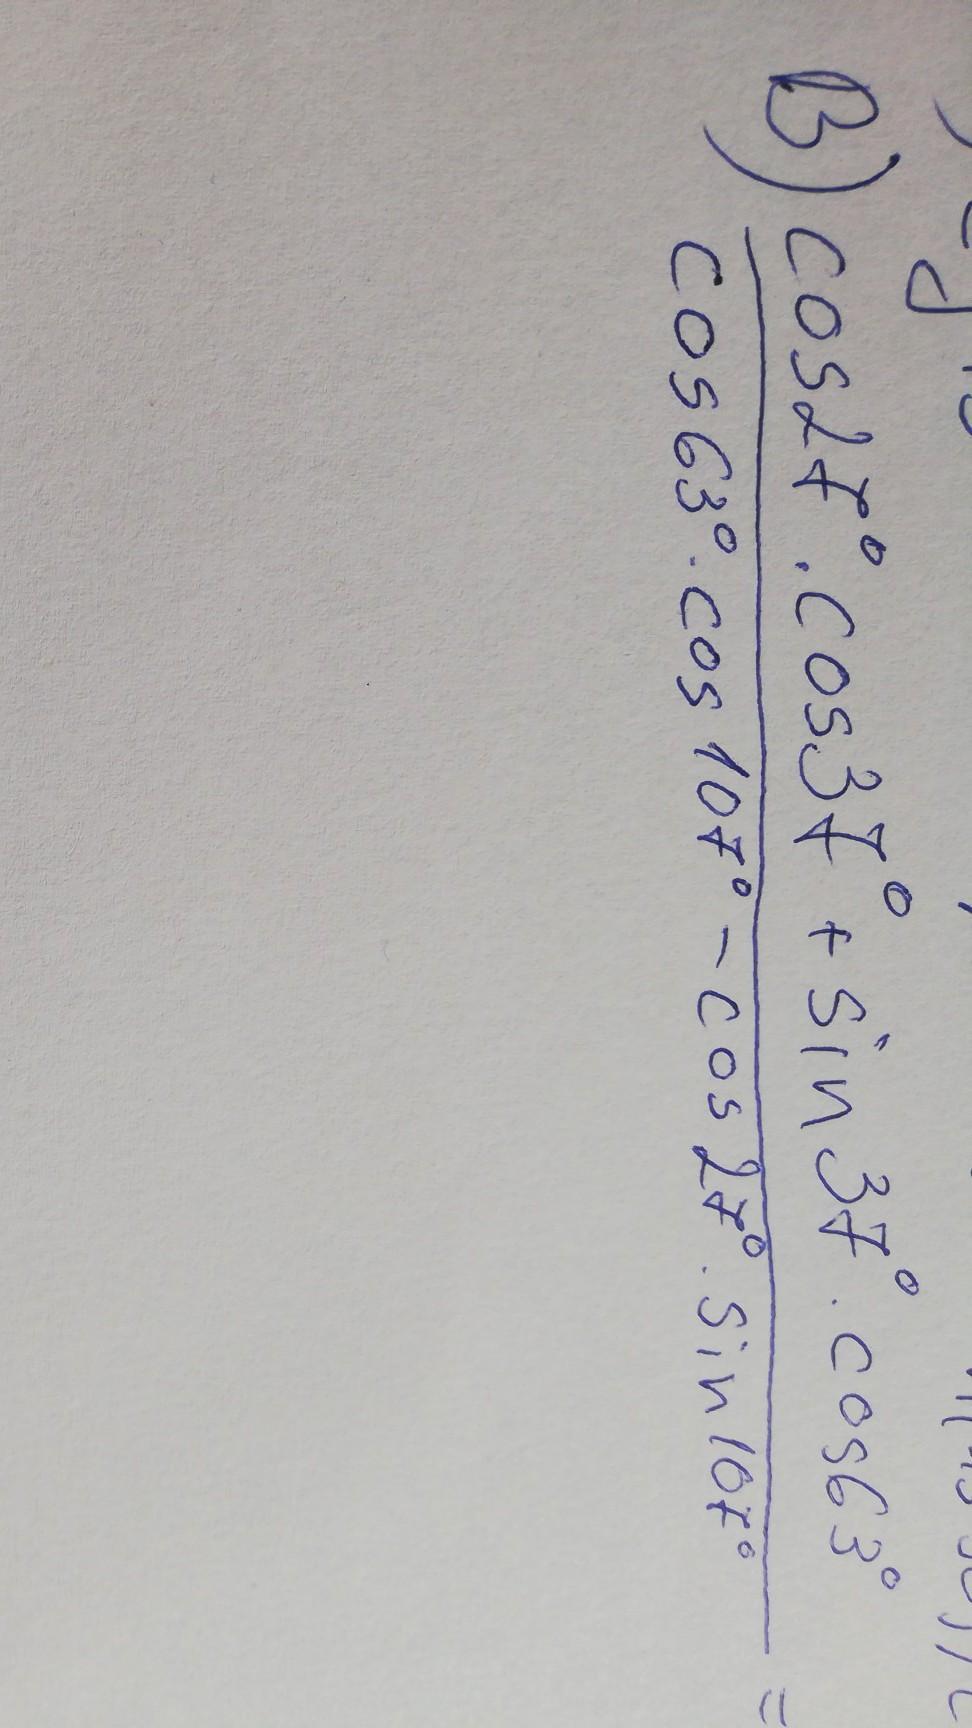 B) cos27°·cos37° + sin37°·cos63°
cos63°·cos107° - cos27°·sin107° =